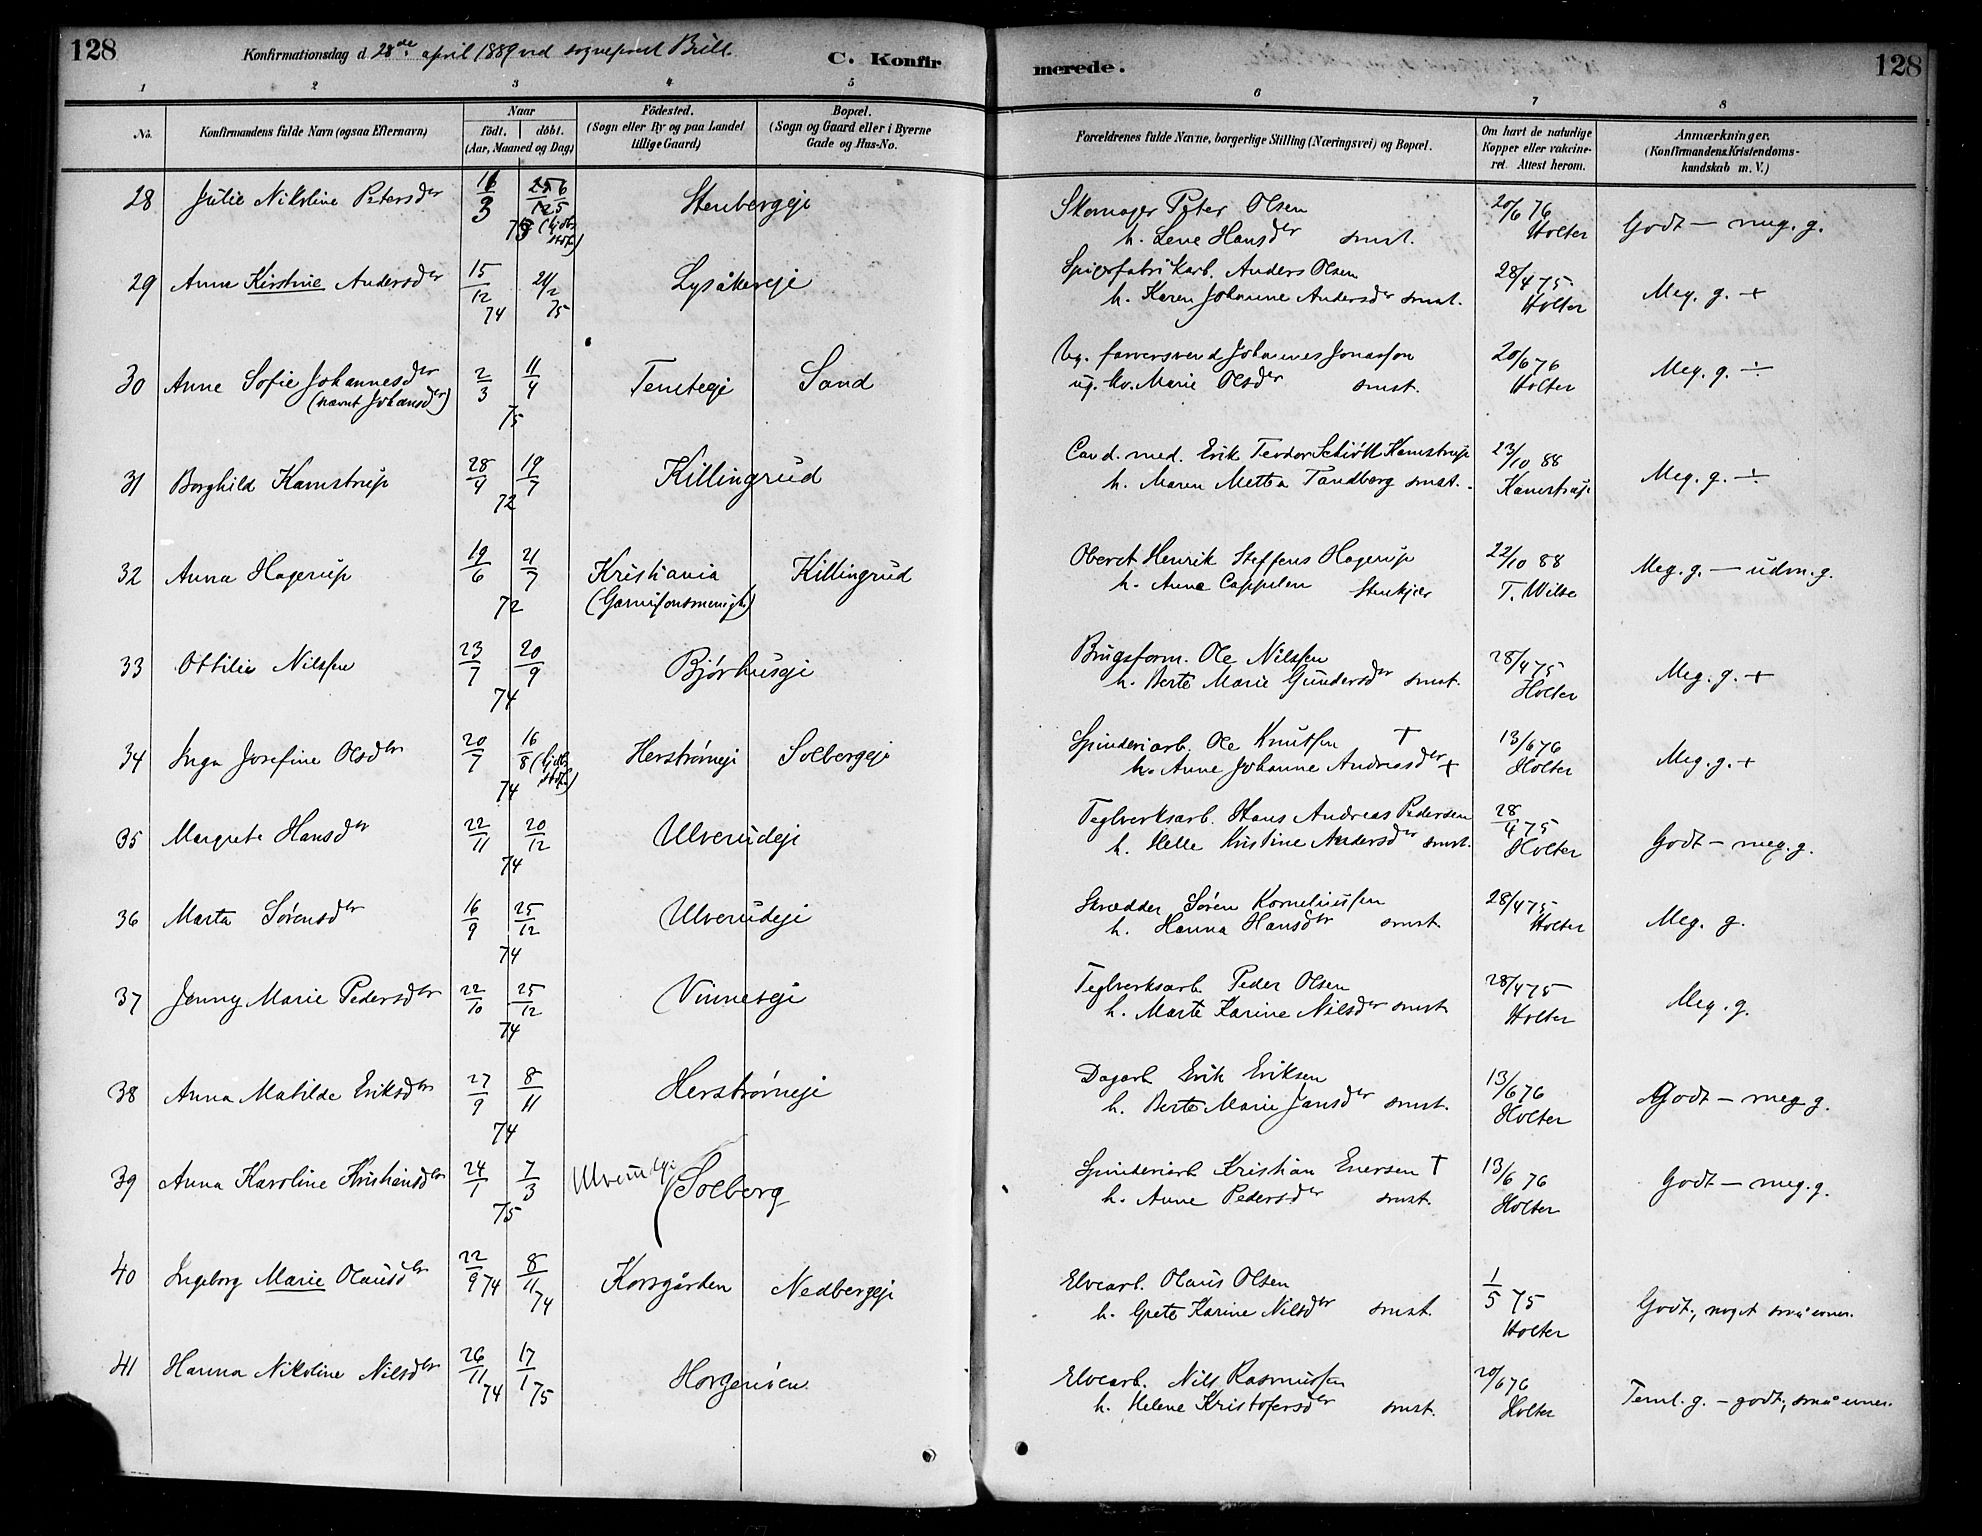 128
Konfirmationsdag d. 28de april 1889 ved sogneprest Bull.
C. Konfirmerede.
128
1 2 3 4 5 6 7 8
No.
Konfirmandens fulde Navn (ogsaa Efternavn)
Naar
født. | døbt.
(Aar, Maaned og Dag)
Fødested.
(Sogn eller By og paa Landet tillige Gaard)
Bopæl.
(Sogn og Gaard eller i Byerne Gade og Hus-No.
Forældrenes fulde Navne, borgerlige Stilling (Næringsvei) og Bopæl.
Om havt de naturlige Kopper eller vakcineret. Attest herom.
Anmærkninger.
(Konfirmandens Kristendomskundskab m. V.)
28 Julie Nikoline Petersdr 16/3 75 Stenbergeje Skomager Peter Olsen 20/6 76 Godt – meg. g.
(hjdbt stdf.) h. Lene Hansdr smst. Holter
29 Anne Kirstine Andersdr 15/12 74 21/2 75 Lysåkereje Spigerfabrikarb. Anders Olsen 28/4 75 Meg. g. +
h. Karen Johanne Andersdr smst. Holter
30 Anne Sofie Johannesdr 2/3 11/4 75 Tomtegje Sand Ug. farversvend Johannes Jonassøn 20/6 76 Meg. g. ÷
(nævnt Johansdr) ug. kv. Marie Olsdr smst. Holter
31 Borghild Kamstrup 28/4 19/7 72 Killingrud Cand. med. Erik Teodor Schiøtt Kamstrup 23/10 88 Meg. g. ÷
h. Maren Metta Tandberg smst. Kamstrup
32 Anna Hagerup 19/6 21/7 72 Kristiania Killingrud Oberst Henrik Steffens Hagerup 22/10 88 Meg. g. – udm. g.
(Garnisonsmenigh.) h. Anna Cappelen Stenkjær T. Wilse
33 Ottilie Nilssen 23/7 20/9 74 Bjørhusgje Brugsform. Ole Nilssen 28/4 75 Meg. g. +
h. Berte Marie Gundersdr smst. Holter
34 Inga Josefine Olsdr 20/7 16/8 74 (hjdbt stdf.) Herstrømeje Solbergeje Spinderiarb. Ole Knutsen † 13/6 76 Meg. g. +
h. Anne Johanne Andreasdr + Holter
35 Margrete Hansdr 22/11 20/12 74 Ulverudeje Teglverksarb. Hans Andreas Pedersen 28/4 75 Godt – meg. g.
h. Helle Kristine Andersdr smst. Holter
36 Marta Sørensdr 16/9 25/12 74 Ulverudeje Skrædder Søren Korneliussen 28/4 75 Meg. g.
h. Hanna Hansdr smst. Holter
37 Jenny Marie Pedersdr 22/10 25/12 74 Vinneseje Teglverksarb. Peder Olsen 28/4 75 Meg. g.
h. Marte Karine Nilsdr smst. Holter
38 Anna Matilde Eriksdr 27/9 8/11 74 Herstrømeje Dagarb. Erik Eriksen 13/6 76 Godt – meg g.
h. Berte Marie Jansdr smst. Holter
39 Anna Karoline Kristiansdr 24/1 7/3 75 Ulverudeje Solberg Spinderiarb. Kristian Enersen † 13/6 76 Godt – meg. g.
h. Anne Pedersdr smst. Holter
40 Ingeborg Marie Olausdr 22/9 74 8/11 74 Korsgården Nedbergeje Elvearb. Olaus Olsen 1/5 75 Godt, noget små evner.
h. Grete Karine Nilsdr smst. Holter
41 Hanna Nikoline Nilsdr 26/11 74 17/1 75 Horgenøen Elvearb. Nils Rasmussen 20/6 76 Teml. g. – godt, små evner.
h. Helene Kristofersdr smst. Holter